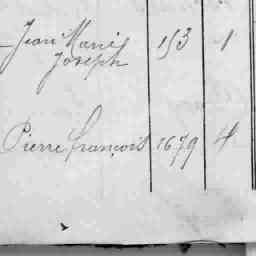 Jean Marie 153 1
Joseph
Pierre François 1679 4